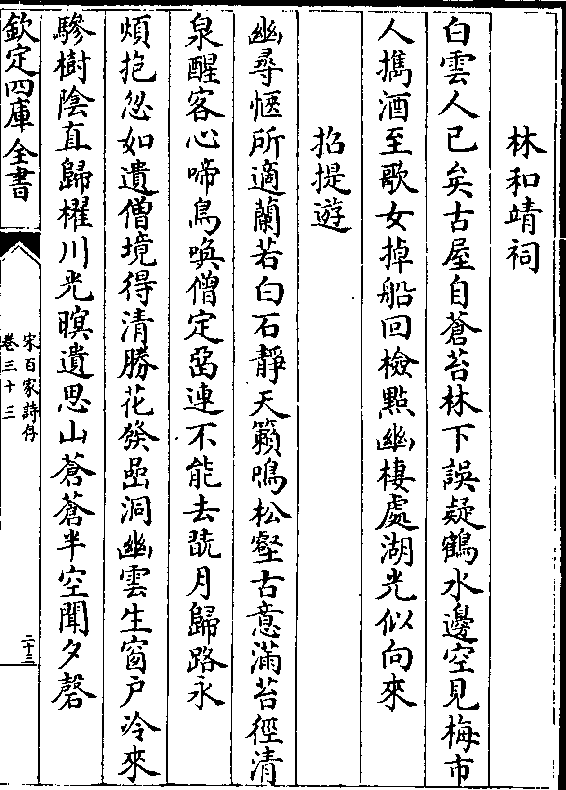 林和靖祠
白雲人已矣古屋自蒼苔林下誤疑鶴水邊空見梅市
人攜酒至歌女掉船回檢點幽棲處湖光似向來
招提遊
幽尋愜所適蘭若白石靜天籟鳴松壑古意滿苔徑清
泉醒客心啼鳥喚僧定留連不能去皎月歸路永
煩抱忽如遺僧境得清勝花發嵒洞幽雲生窗戶冷來
驂樹陰直歸櫂川光暝遺思山蒼蒼半空聞夕磬
欽定四庫全書
宋百家詩存
卷三十三
二十三